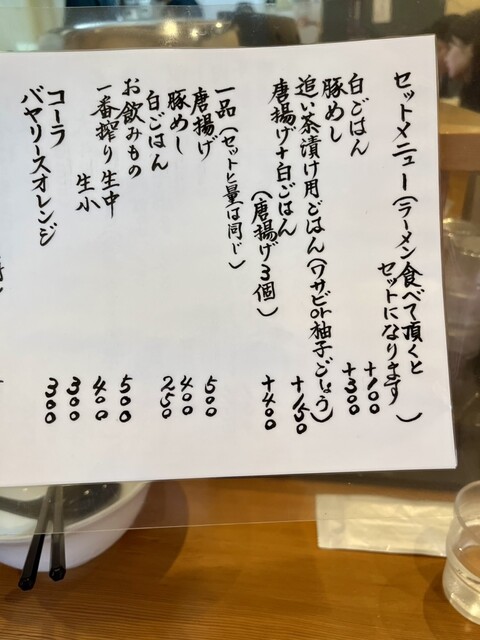 セットメニュー(ラーメン食べて頂くと
セットになります)
白ごはん +100
豚めし +300
追い茶漬け用ごはん(ワサビor柚子ごしょう) +150
唐揚げ+白ごはん +400
(唐揚げ3個)
一品(セットと量は同じ)
唐揚げ 500
豚めし 400
白ごはん 250
お飲みもの
一番搾り生中 500
生小 400
コーラ 300
バヤリースオレンジ 300